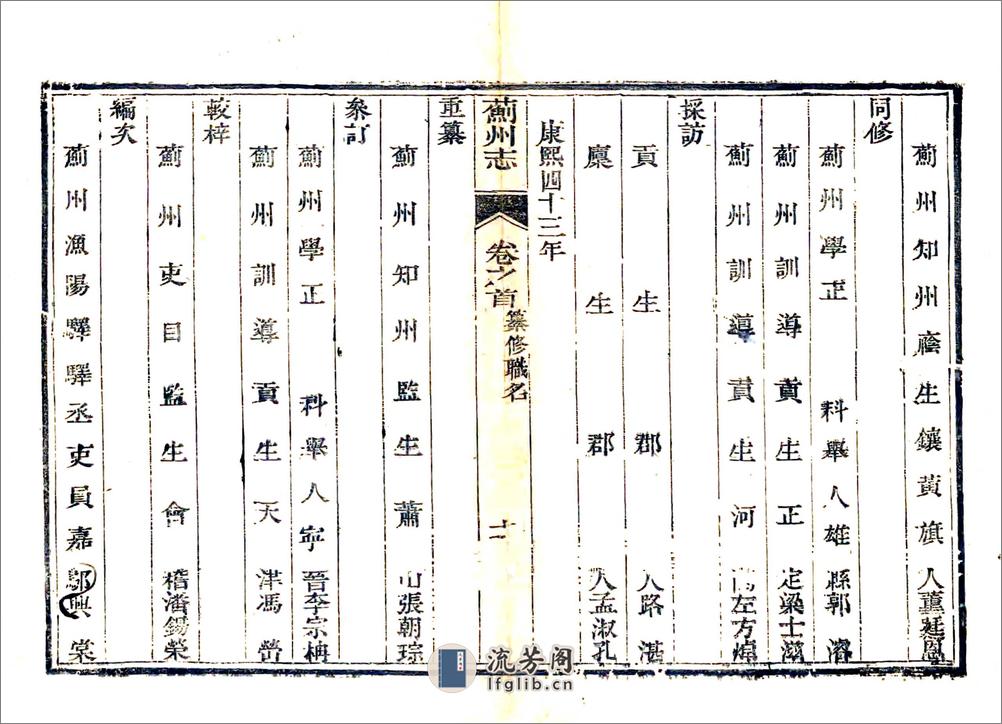 薊州知州廕生鑲黃旗人董廷恩
同修
薊州學正　科舉人雄縣郭濬
薊州訓導黃生正定梁士滋
薊州訓導貢生河間左方燽
採訪
貢生郡人路湛
廩生郡人孟淑孔
康熙四十三年
薊州志　卷之首　纂修職名　十
重纂
薊州知州監生蕭山張朝琮
叅訂
薊州學正　科舉人寧晉李宗柟
薊州訓導貢生天津馮嶨
較梓
薊州吏目監生會稽潘錫榮
編次
薊州漁陽驛驛丞吏員嘉興棠
流芳阁
lfglib.cn